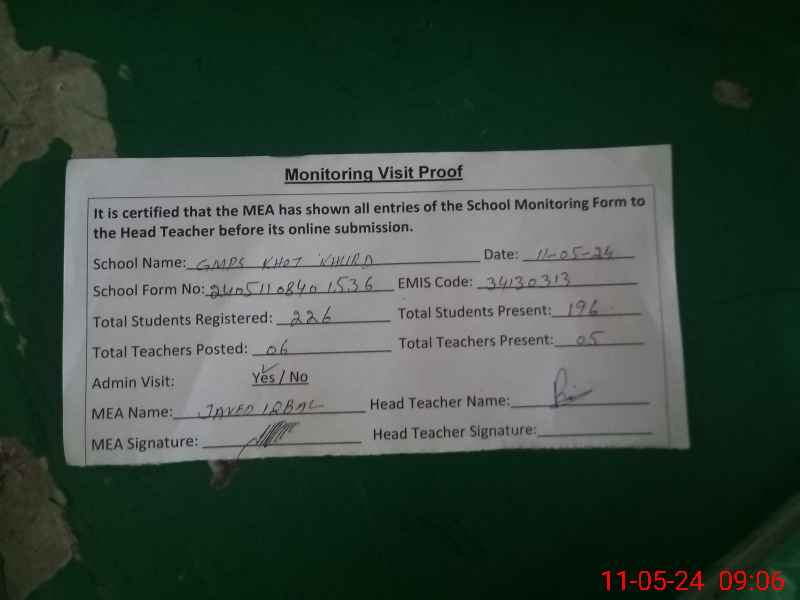 Monitoring Visit Proof
It is certified that the MEA has shown all entries of the School Monitoring Form to
the Head Teacher before its online submission.
School Name: GMPS KHOT KHURD Date: 11-05-24
School Form No: 2405110840 1536 EMIS Code: 34130313
Total Students Registered: 226 Total Students Present: 196
Total Teachers Posted: 06 Total Teachers Present: 05
Admin Visit: Yes / No
MEA Name: JAVED IQBAL Head Teacher Name:
MEA Signature: Head Teacher Signature:
11-05-24 09:06